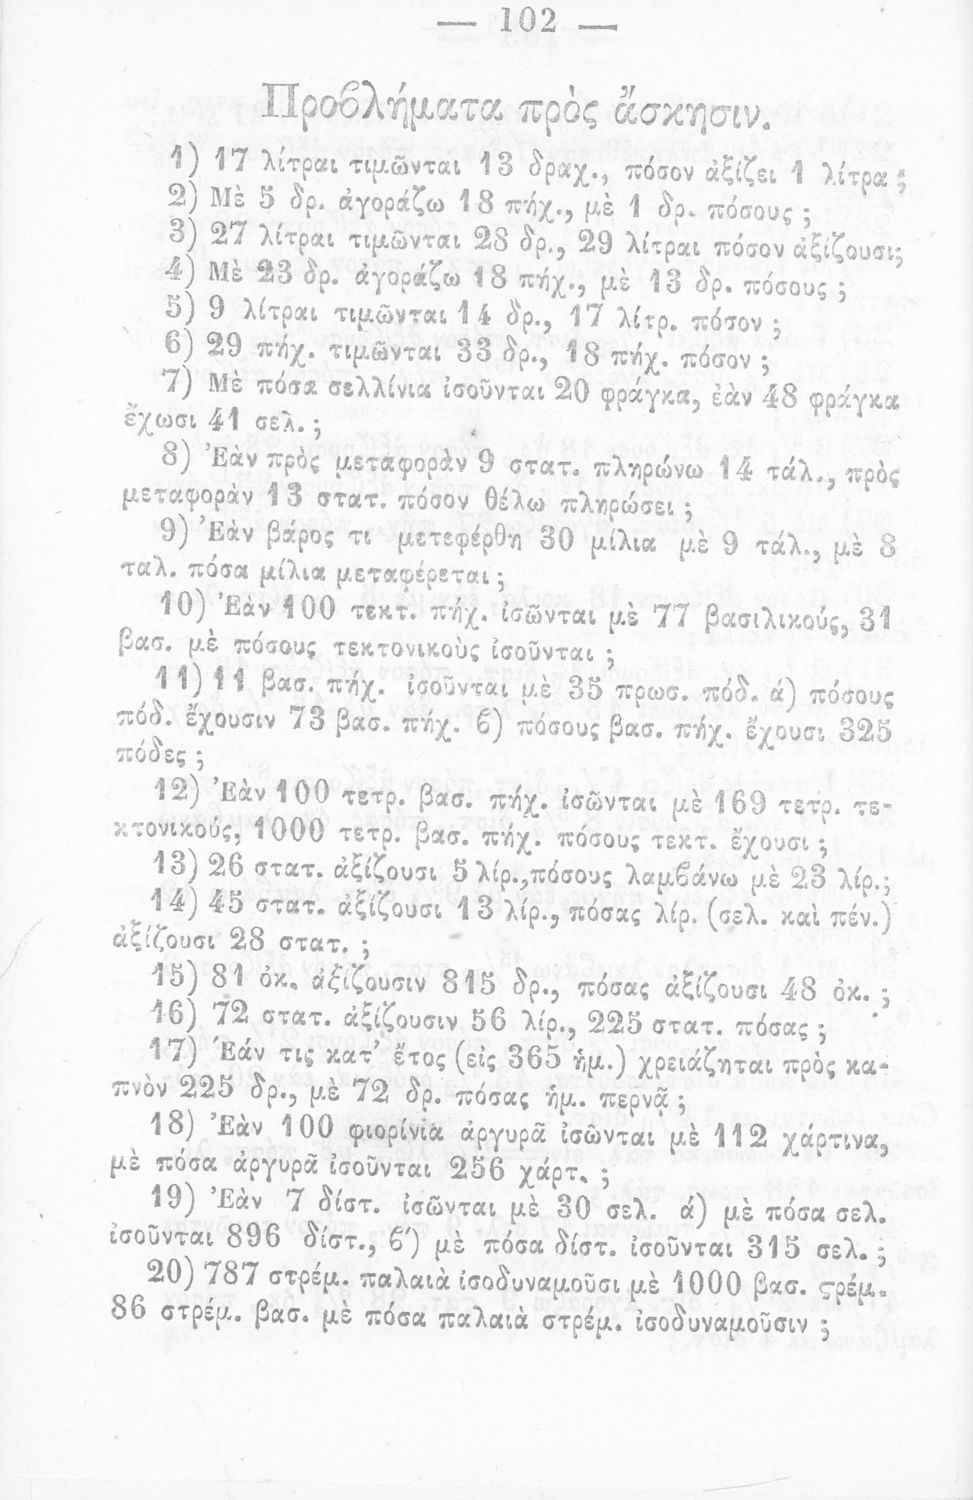 — 102 —
Προβλήματα πρὸς ἄσκησιν.
1) 17 λίτραι τιμῶνται 13 δραχ., πόσον ἀξίζει 1 λίτρα ;
2) Μὲ 5 δρ. ἀγοράζω 18 πήχ., μὲ 1 δρ. πόσους ;
3) 27 λίτραι τιμῶνται 28 δρ., 29 λίτραι πόσον ἀξίζουσι;
4) Μὲ 23 δρ. ἀγοράζω 18 πήχ., μὲ 13 δρ. πόσους ;
5) 9 λίτραι τιμῶνται 14 δρ., 17 λίτρ. πόσον ;
6) 29 πήχ. τιμῶνται 33 δρ., 18 πήχ. πόσον ;
7) Μὲ πόσα σελλίνια ἰσοῦνται 20 φράγκα, ἐὰν 48 φράγκα
ἔχωσι 41 σελ. ;
8) Ἐὰν πρὸς μεταφορὰν 9 στατ. πληρώνω 14 τάλ., πρὸς
μεταφορὰν 13 στατ. πόσον θέλω πληρώσει ;
9) Ἐὰν βάρος τι μετεφέρθη 30 μίλια μὲ 9 τάλ., μὲ 8
ταλ. πόσα μίλια μεταφέρεται ;
10) Ἐὰν 100 τεκτ. πήχ. ἰσῶνται μὲ 77 βασιλικούς, 31
βασ. μὲ πόσους τεκτονικοὺς ἰσοῦνται ;
11) 11 βασ. πήχ. ἰσοῦνται μὲ 35 πρωσ. πόδ. ά) πόσους
πόδ. ἔχουσιν 73 βασ. πήχ. ϐ) πόσους βασ. πήχ. ἔχουσι 325
πόδες ;
12) Ἐὰν 100 τετρ. βασ. πήχ. ἰσῶνται μὲ 169 τετρ. τε-
κτονικούς, 1000 τετρ. βασ. πήχ. πόσους τεκτ. ἔχουσι ;
13) 26 στατ. ἀξίζουσι 5 λίρ.,πόσους λαμϐάνω μὲ 23 λίρ.;
14) 45 στατ. ἀξίζουσι 13 λίρ., πόσας λίρ. (σελ. καὶ πέν.)
ἀξίζουσι 28 στατ. ;
15) 81 ὀκ. ἀξίζουσιν 815 δρ., πόσας ἀξίζουσι 48 ὀκ. ;
16) 72 στατ. ἀξίζουσιν 56 λίρ., 225 στατ. πόσας ;
17) Ἐάν τις κατ' ἔτος (εἰς 365 ἡμ.) χρειάζηται πρὸς κα-
πνὸν 225 δρ., μὲ 72 δρ. πόσας ἡμ. περνᾷ ;
18) Ἐὰν 100 φιορίνια ἀργυρᾶ ἰσῶνται μὲ 112 χάρτινα,
μὲ πόσα ἀργυρᾶ ἰσοῦνται 256 χάρτ. ;
19) Ἐὰν 7 δίστ. ἰσῶνται μὲ 30 σελ. ά) μὲ πόσα σελ.
ἰσοῦνται 896 δίστ., ϐ') μὲ πόσα δίστ. ἰσοῦνται 315 σελ. ;
20) 787 στρέμ. παλαιὰ ἰσοδυναμοῦσι μὲ 1000 βασ. ϛρέμ.
86 στρέμ. βασ. μὲ πόσα παλαιὰ στρέμ. ἰσοδυναμοῦσιν ;